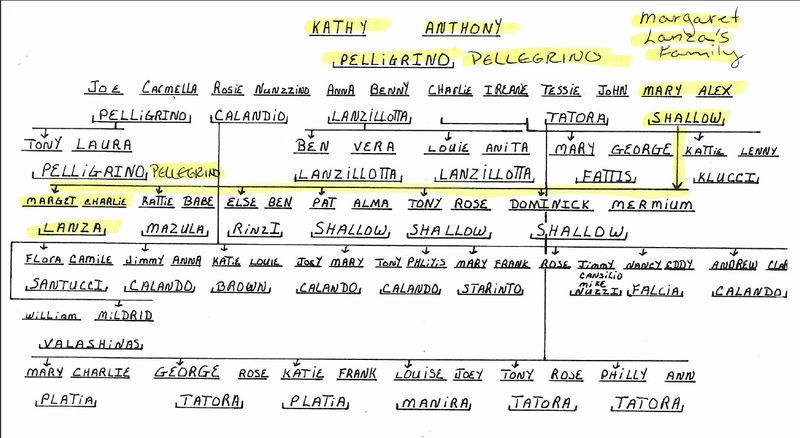 KATHY ANTHONY
Margaret
Lanza's
Family
PELLIGRINO, PELLEGRINO
JOE CARMELLA ROSIE NUNZZINO ANNA BENNY CHARLIE IREANE TESSIE JOHN MARY ALEX
PELLIGRINO CALANDIO LANZILLOTTA TATORA SHALLOW
TONY LAURA BEN VERA LOUIE ANITA MARY GEORGE KATTIE LENNY
PELLIGRINO, PELLEGRINO LANZILLOTTA LANZILLOTTA FATTIS KLUCCI
MARGET CHARLIE KATTIE BABE ELSE BEN PAT ALMA TONY ROSE DOMINICK MERMIUM
LANZA MAZULA RINZI SHALLOW SHALLOW SHALLOW
FLORA CAMILE JIMMY ANNA KATIE LOUIE JOEY MARY TONY PHLIYIS MARY FRANK ROSE JIMMY NANCY EDDY ANDREW CLAR
CANSILIO
MIKE
SANTUCCI CALANDO BROWN CALANDO CALANDO STARINTO NUZZI FALCIA CALANDO
WILLIAM MILDRID
VALASHINAS
MARY CHARLIE GEORGE ROSE KATIE FRANK LOUISE JOEY TONY ROSE PHILLY ANN
PLATIA TATORA PLATIA MANIRA TATORA TATORA